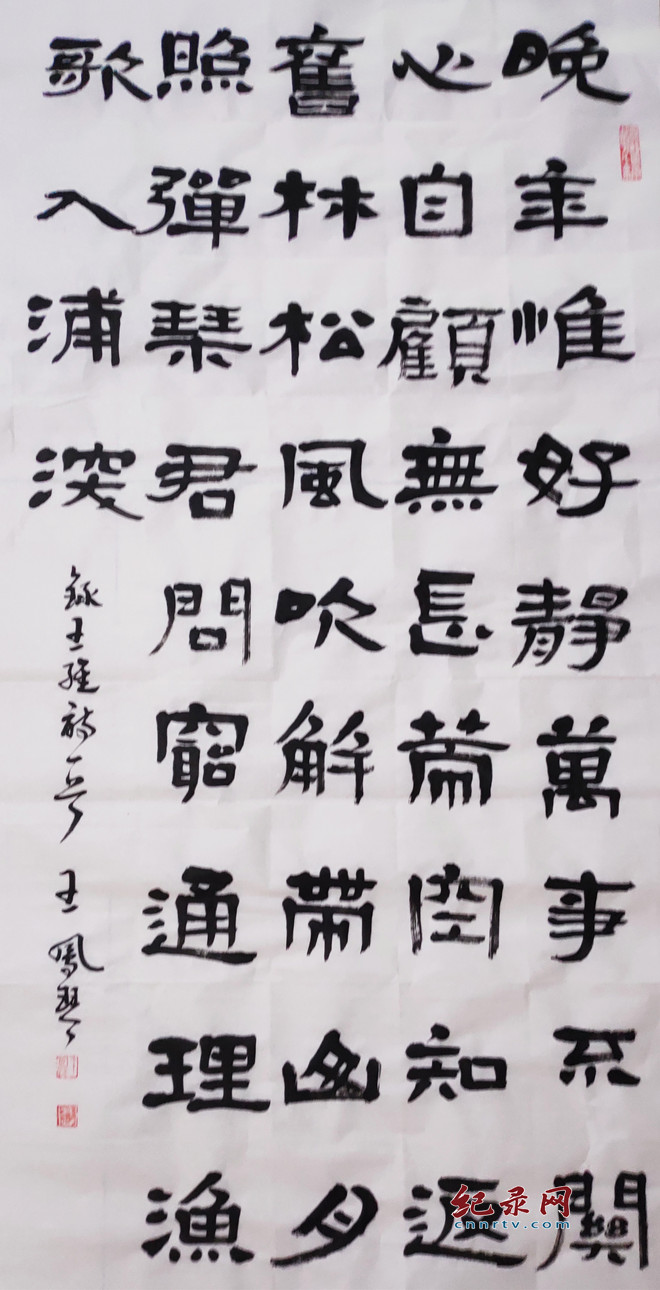 晚年惟好靜萬事不關
心自顧無長策空知返
舊林松風吹解帶山月
照彈琴君問窮通理漁
歌入浦深
錄王維詩一首 王鳳琴
纪录网
cnnrtv.com